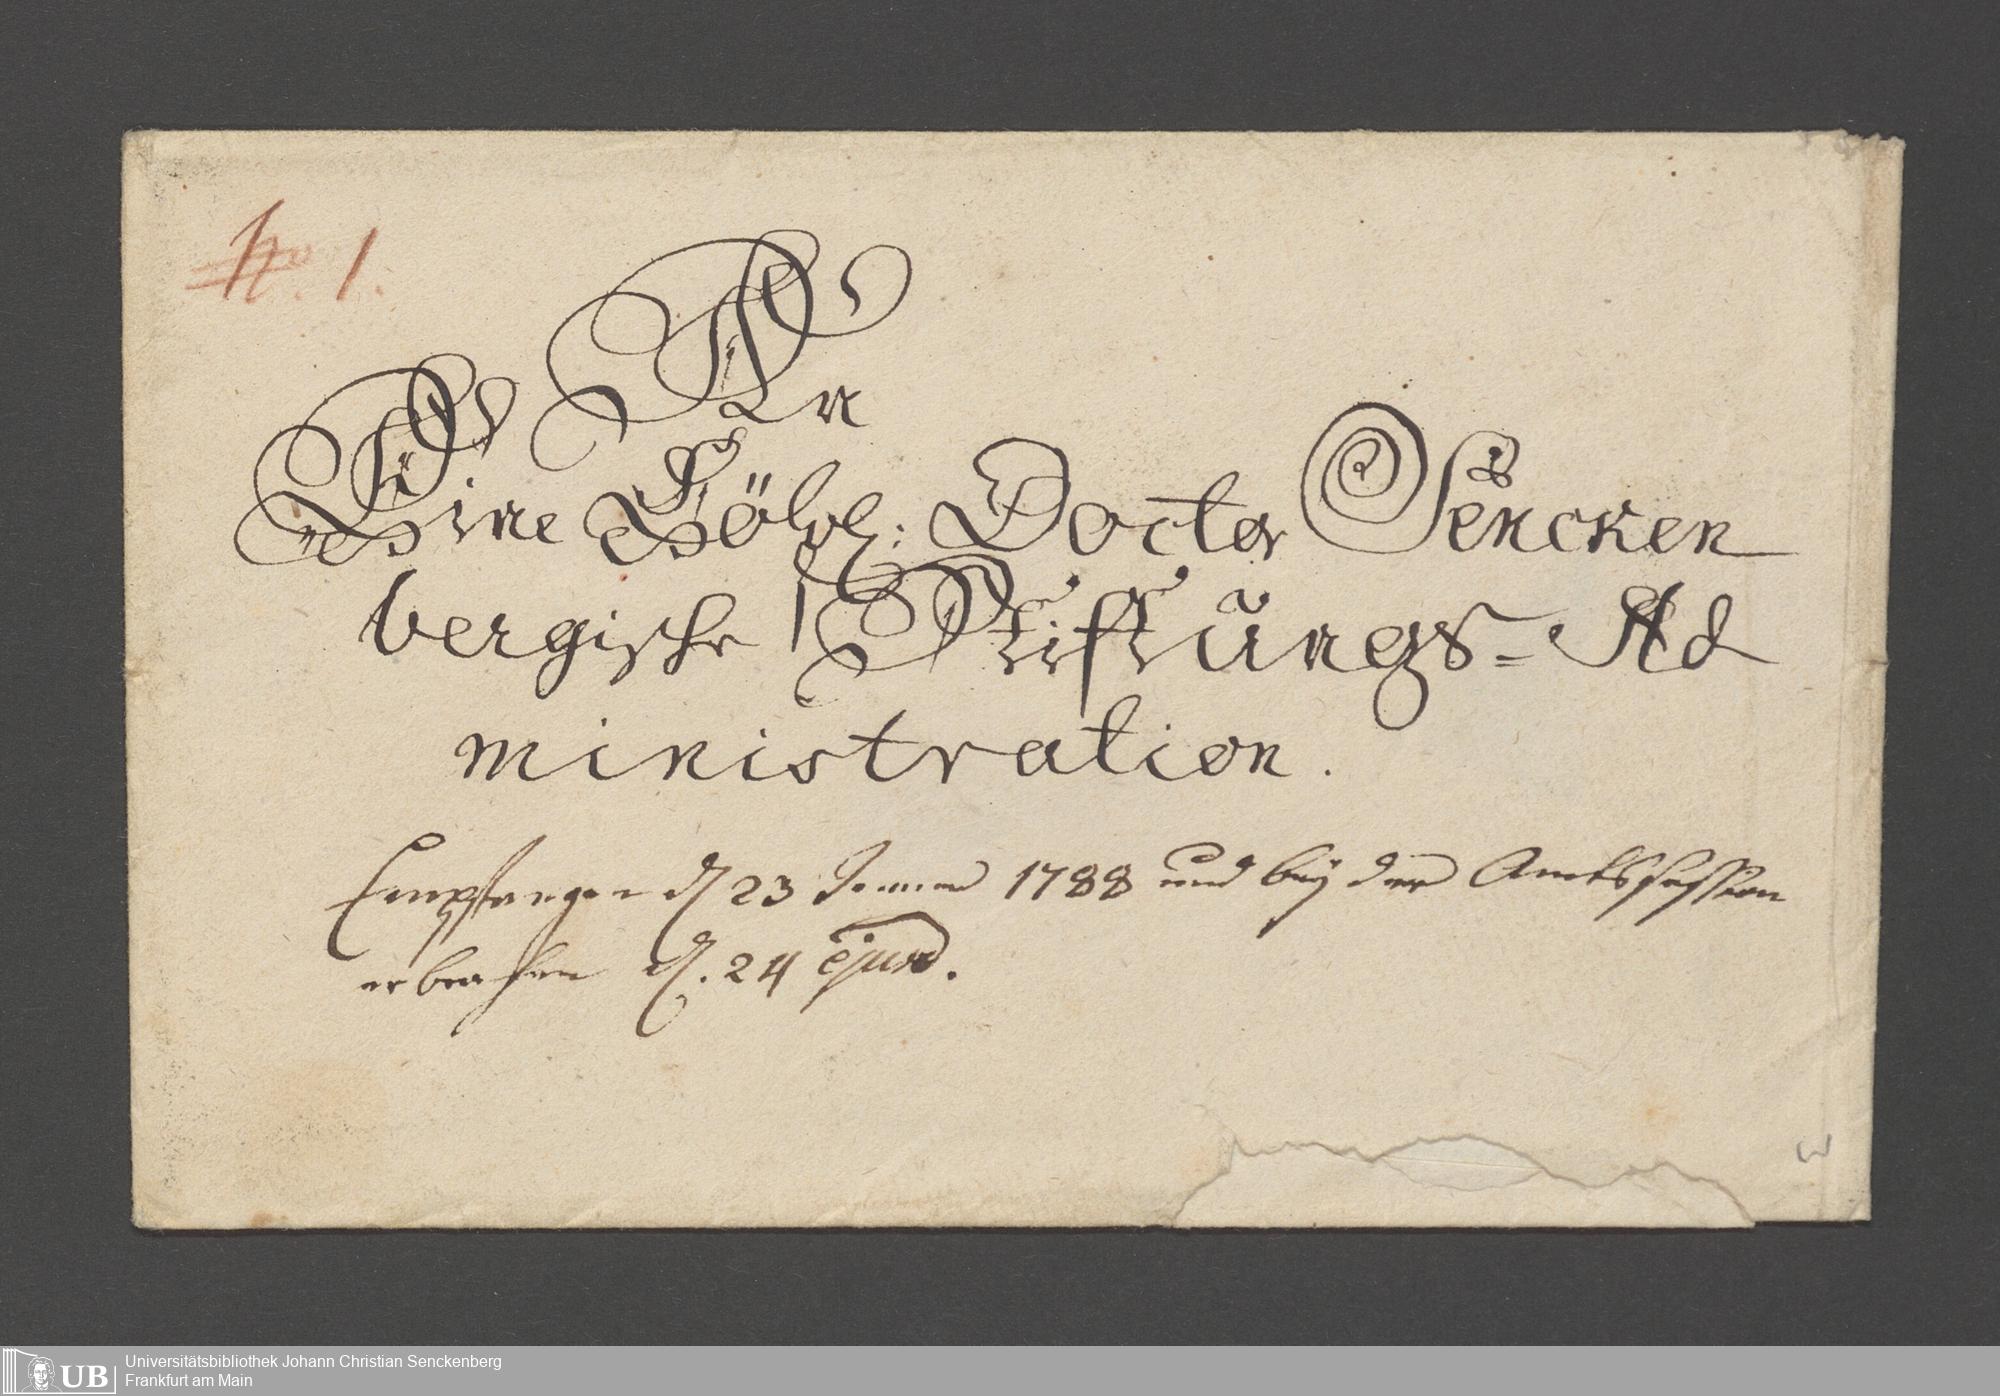 No. 1.
An
Eine Löbl: Docter Sencken
bergische Stiftungs= Ad
ministration.
Empfangen d 23 Jenner 1788 und bey der Amtssession
erbrochen d. 24 ejusd.
Universitätsbibliothek Johann Christian Senckenberg
UB Frankfurt am Main